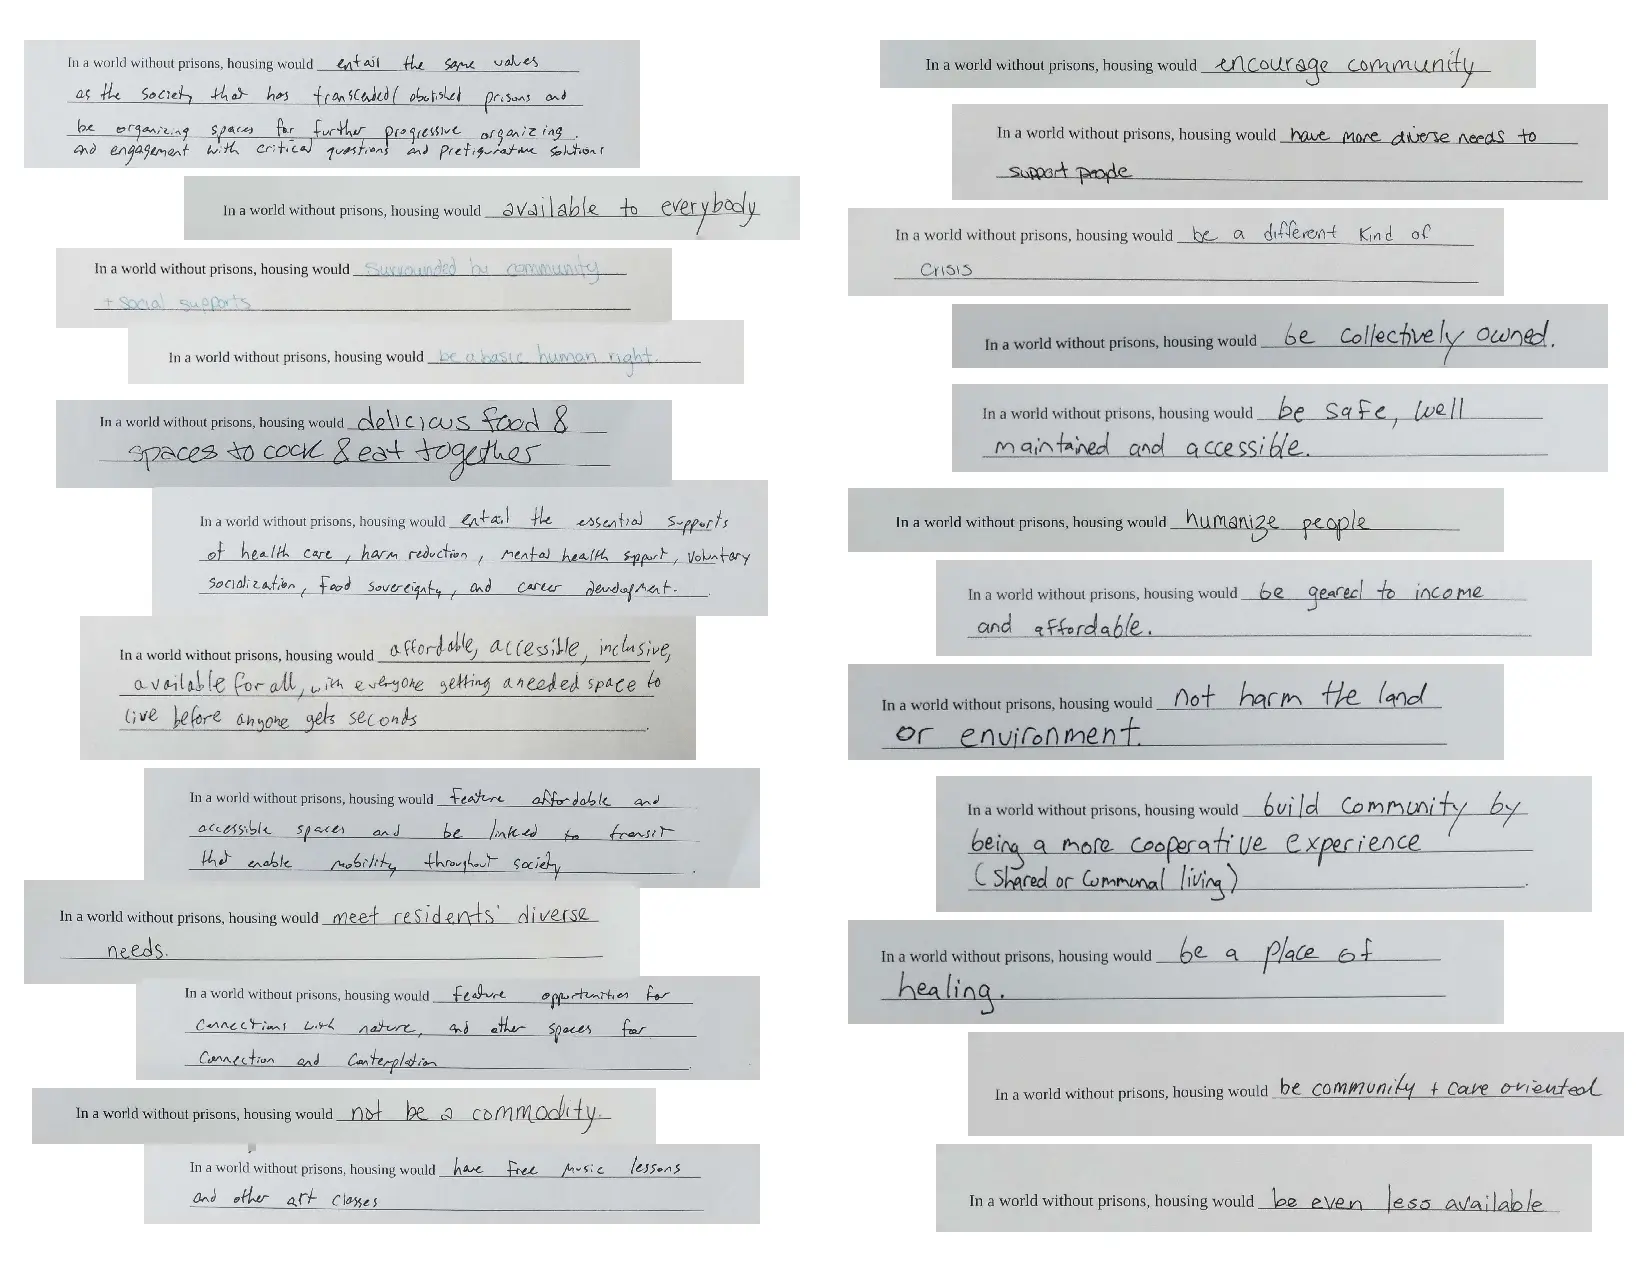 In a world without prisons, housing would entail the same values
as the society that has transcended/abolished prisons and
be organizing spaces for further progressive organizing.
and engagement with critical questions and prefigurative solutions
In a world without prisons, housing would available to everybody
In a world without prisons, housing would surrounded by community
+ social supports
In a world without prisons, housing would be a basic human right.
In a world without prisons, housing would delicious food &
spaces to cook & eat together
In a world without prisons, housing would entail the essential supports
of health care, harm reduction, mental health spport, voluntary
socialization, food sovereignty, and career development.
In a world without prisons, housing would affordable, accessible, inclusive,
available for all, with everyone getting a needed space to
live before anyone gets seconds
In a world without prisons, housing would feature affordable and
accessible spaces and be linked to transit
that enable mobility throughout society.
In a world without prisons, housing would meet residents' diverse
needs.
In a world without prisons, housing would feature opportunities for
connections with nature, and other spaces for
connection and contemplation.
In a world without prisons, housing would not be a commodity.
In a world without prisons, housing would have free music lessons
and other art classes
In a world without prisons, housing would encourage community
In a world without prisons, housing would have more diverse needs to
support people
In a world without prisons, housing would be a different kind of
crisis
In a world without prisons, housing would be collectively owned.
In a world without prisons, housing would be safe, well
maintained and accessible.
In a world without prisons, housing would humanize people
In a world without prisons, housing would be geared to income
and affordable.
In a world without prisons, housing would not harm the land
or environment.
In a world without prisons, housing would build community by
being a more cooperative experience
(shared or communal living)
In a world without prisons, housing would be a place of
healing.
In a world without prisons, housing would be community + care oriented
In a world without prisons, housing would be even less available